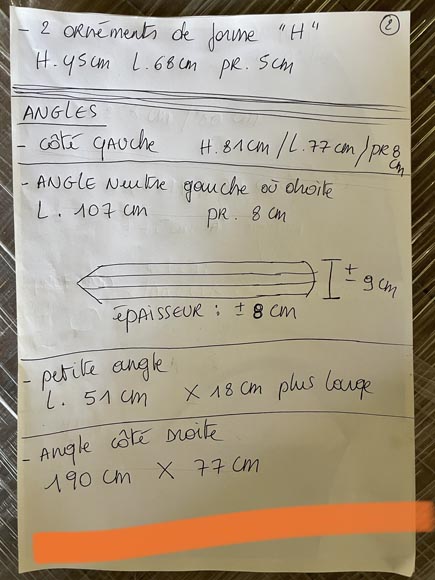 - 2 ORNÉMENTS de forme "H" ②
H. 45cm L. 68cm pr. 5cm
ANGLES
- CÔTÉ GAUCHE H. 81CM / L. 77CM / PR 8 CM
- ANGLE Neutre gauche où droite
L. 107 cm PR. 8 cm
± 9 cm
ÉPAISSEUR : ± 8 cm
- petite angle
L. 51 cm X 18 cm plus large
- Angle CÔTÉ DROITE
190 cm X 77 cm